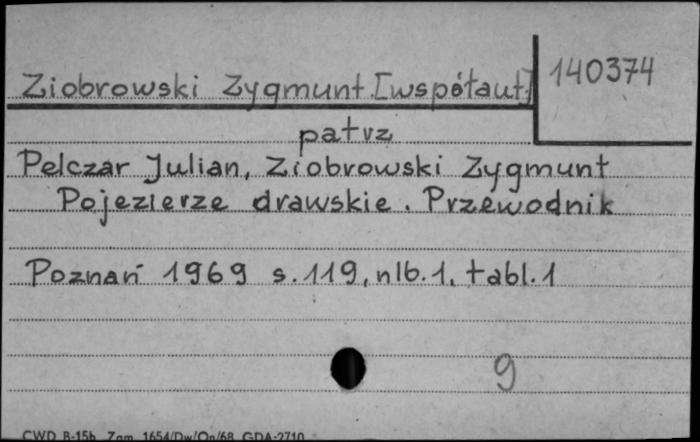 Ziobrowski Zygmunt [współaut.] 140374
patrz
Pelczar Julian, Ziobrowski Zygmunt
Pojezierze drawskie. Przewodnik
Poznań 1969 s.119, nlb.1, tabl.1
9
CWD B-15b Zam. 1654/Dw/On/68 GDA-2710